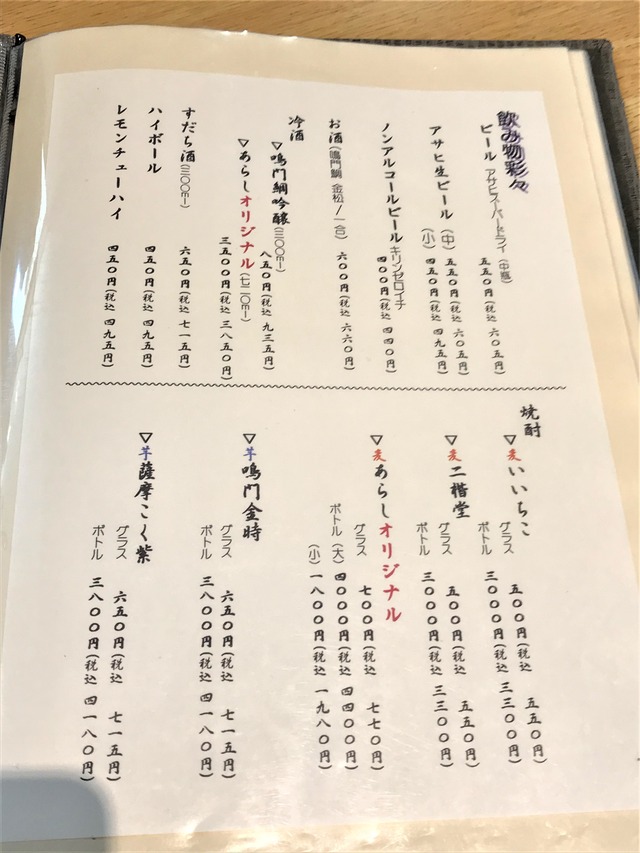 飲み物彩々
ビール アサヒスーパードライ (中瓶) 五五〇円(税込 六〇五円)
アサヒ生ビール (中) 五五〇円(税込 六〇五円)
(小) 四五〇円(税込 四九五円)
ノンアルコールビール キリンゼロイチ
四〇〇円(税込 四四〇円)
お酒(鳴門鯛 金松/一合) 六〇〇円(税込 六六〇円)
冷酒
▽鳴門鯛吟醸(三〇〇ml)
八五〇円(税込 九三五円)
▽あらしオリジナル(七二〇ml)
三五〇〇円(税込 三八五〇円)
すだち酒(三〇〇ml) 六五〇円(税込 七一五円)
ハイボール 四五〇円(税込 四九五円)
レモンチューハイ 四五〇円(税込 四九五円)
焼酎
▽麦いいちこ
グラス 五〇〇円(税込 五五〇円)
ボトル 三〇〇〇円(税込 三三〇〇円)
▽麦二楷堂
グラス 五〇〇円(税込 五五〇円)
ボトル 三〇〇〇円(税込 三三〇〇円)
▽麦あらしオリジナル
グラス 七〇〇円(税込 七七〇円)
ボトル(大) 四〇〇〇円(税込 四四〇〇円)
(小) 一八〇〇円(税込 一九八〇円)
▽芋鳴門金時
グラス 六五〇円(税込 七一五円)
ボトル 三八〇〇円(税込 四一八〇円)
▽芋薩摩こく紫
グラス 六五〇円(税込 七一五円)
ボトル 三八〇〇円(税込 四一八〇円)